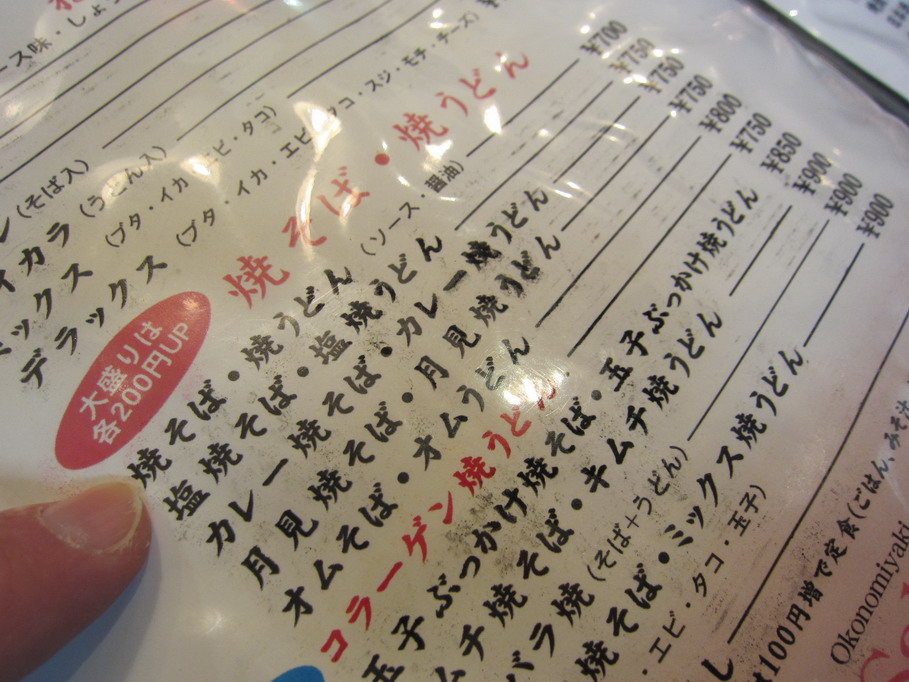 ース味・しょう
レ(そば入)
イカラ(うどん入)
ミックス(ブタ・イカ・エビ・タコ)
デラックス(ブタ・イカ・エビ・タコ・スジ・モチ・チーズ)
焼そば・焼うどん
大盛りは
各200円UP
焼そば・焼うどん(ソース・醤油) ¥700
塩焼そば・塩焼うどん ¥750
カレー焼そば・カレー焼うどん ¥750
月見焼そば・月見焼うどん ¥750
オムそば・オムうどん ¥800
コラーゲン焼うどん ¥750
玉子ぶっかけ焼そば・玉子ぶっかけ焼うどん ¥850
ムチ焼そば・キムチ焼うどん ¥900
バラ焼(そば+うどん) ¥900
焼そば・ミックス焼うどん ¥900
・エビ・タコ・玉子)
し
¥100円増で定食(ごはん,みそ汁
Okonomiyaki